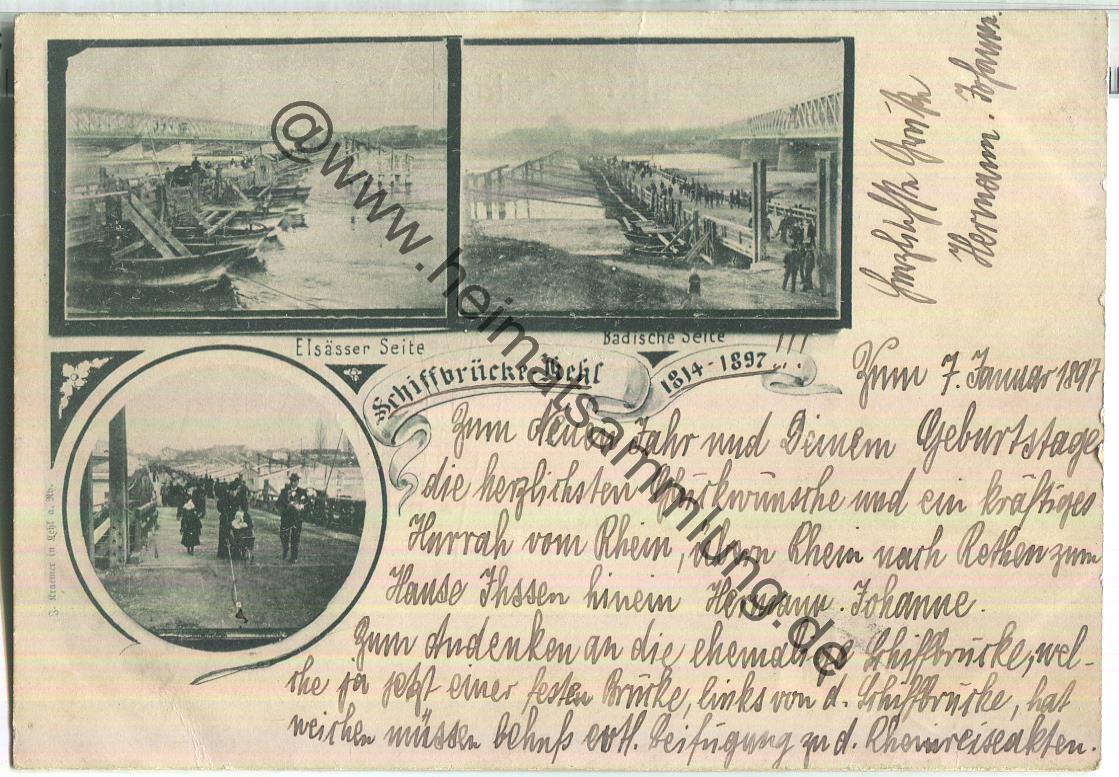 Herzliche Grüße
Hermann. Johanne.
Elsässer Seite
Badische Seite
Schiffbrücke Kehl
1814-1897 !!!
Zum 7. Januar 1897
Zum Neuen Jahr und Deinem Geburtstage
die herzlichsten Glückwünsche und ein kräftiges
Hurrah vom Rhein, übern Rhein nach Rethen zum
Hause Ihssen hinein Hermann. Johanne.
Zum Andenken an die ehemalige Schiffbrücke, wel-
che ja jetzt einer festen Brücke, links von d. Schiffbrücke, hat
weichen müssen behufs evtl. Beifügung zu d. Rheinreiseakten.
J. Kraemer in Kehl a. Rh.
@www.heimatsammlung.de